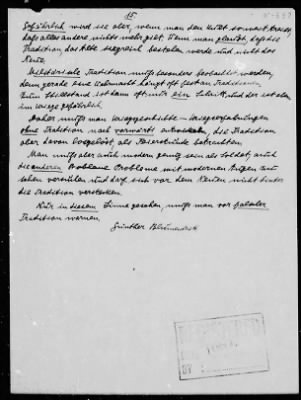 15
Gefährlich wird sie aber, wenn man den Kult so weit treibt,
daß alles andere nicht mehr gilt. Wenn man glaubt, daß die
Tradition, das Alte siegreich bestehen werde und nicht das
Neue.
Militärische Tradition muß besonders beobachtet werden,
denn gerade eine Wehrmacht hängt oft fest an Tradition.
Zum Stillstand ist dann oft nur ein Schritt, und der ist eben
im Kriege gefährlich.
Daher muß man Kriegsgeschichte – Kriegserfahrungen
ohne Tradition nach vorwärts entwickeln, die Tradition
aber davon losgelöst als Feierstunde betrachten.
Man muß aber auch modern genug sein als Soldat, auch
die anderen Probleme mit modernen Augen zu
sehen versuchen und darf sich vor dem Neuen nicht hinter
die Tradition verstecken.
Nur in diesem Sinne gesehen, muß man vor
Tradition warnen.
Günther Blumentritt
REGISTERED
BY